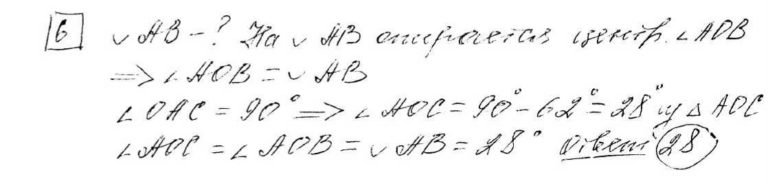 6 ◡AB - ? На ◡AB опирается центр. ∠AOB
=> ∠AOB = ◡AB
∠OAC = 90° => ∠AOC = 90° - 62° = 28° из △AOC
∠AOC = ∠AOB = ◡AB = 28° Ответ 28